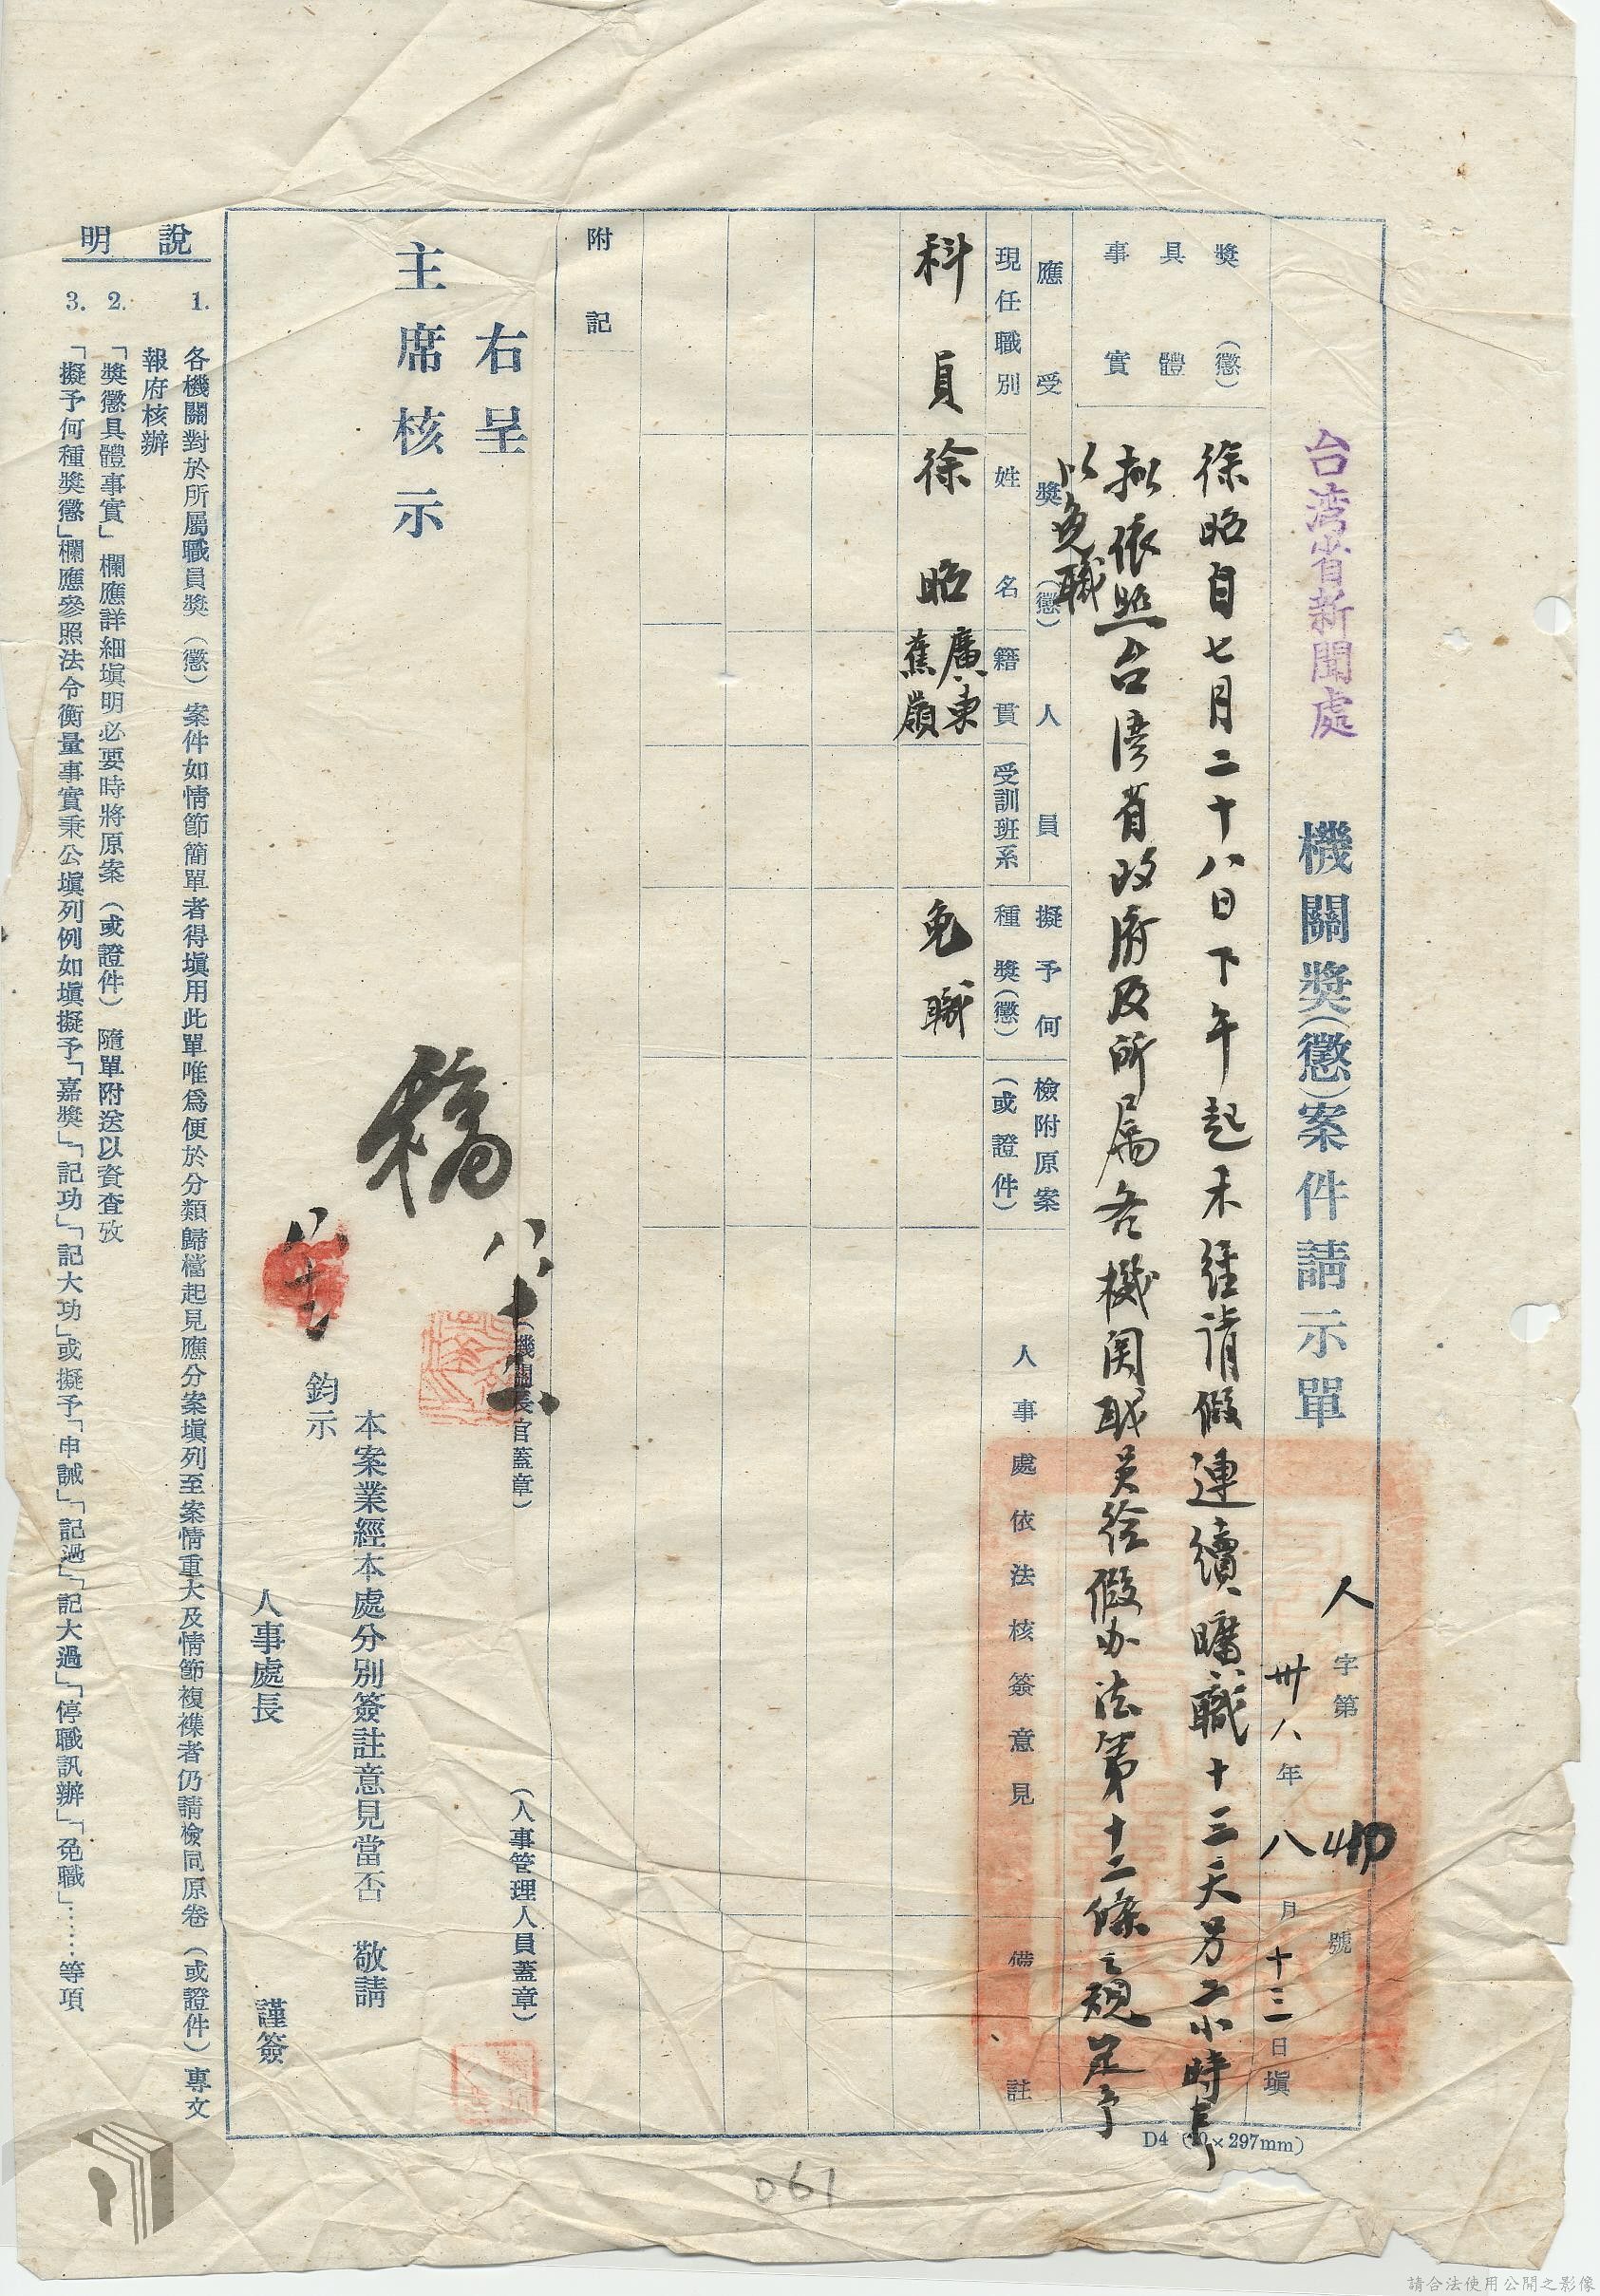 台湾省新聞處 機關獎(懲)案件請示單
人字第 號
卅八年八月十三日塡
獎(懲)具體事實
徐昭自七月二十八日下午起未經請假連續曠職十三天另二小時
拟依照台湾省政府及所属各機関职員给假办法第十二條之規定予
以免職
應受獎(懲)人員
現任職別
姓名
籍貫
受訓班系
擬予何種獎(懲)
檢附原案(或證件)
人事處依法核簽意見
備註
科員
徐昭
廣東
蕉嶺
免職
附記
右呈
主席核示
(機關長官蓋章)
(人事管理人員蓋章)
稿
八十二
本案業經本處分別簽註意見當否 敬請
鈞示
人事處長 謹簽
說明
1. 各機關對於所屬職員獎(懲)案件如情節簡單者得塡用此單唯爲便於分類歸檔起見應分案塡列至案情重大及情節複襍者仍請檢同原卷(或證件)專文
報府核辦
2. 「獎懲具體事實」欄應詳細塡明必要時將原案(或證件)隨單附送以資查攷
3. 「擬予何種獎懲」欄應參照法令衡量事實秉公塡列例如塡擬予「嘉獎」「記功」「記大功」或擬予「申誡」「記過」「記大過」「停職訊辦」「免職」……等項
297mm)
061
請合法使用公開之影像